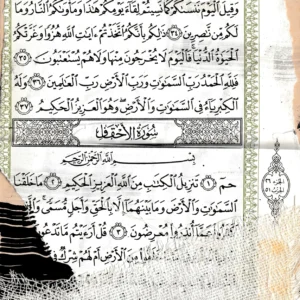 وَقِيلَ ٱلْيَوْمَ نَنسَىٰكُمْ كَمَا نَسِيتُمْ لِقَآءَ يَوْمِكُمْ هَٰذَا وَمَأْوَىٰكُمُ ٱلنَّارُ وَمَا
لَكُم مِّن نَّٰصِرِينَ ٣٤ ذَٰلِكُم بِأَنَّكُمُ ٱتَّخَذْتُمْ ءَايَٰتِ ٱللَّهِ هُزُوًا وَغَرَّتْكُمُ
ٱلْحَيَوٰةُ ٱلدُّنْيَا فَٱلْيَوْمَ لَا يُخْرَجُونَ مِنْهَا وَلَا هُمْ يُسْتَعْتَبُونَ ٣٥
فَلِلَّهِ ٱلْحَمْدُ رَبِّ ٱلسَّمَٰوَٰتِ وَرَبِّ ٱلْأَرْضِ رَبِّ ٱلْعَٰلَمِينَ ٣٦ وَلَهُ
ٱلْكِبْرِيَآءُ فِي ٱلسَّمَٰوَٰتِ وَٱلْأَرْضِ وَهُوَ ٱلْعَزِيزُ ٱلْحَكِيمُ ٣٧
سُورَةُ الأَحْقَافِ
بِسْمِ ٱللَّهِ ٱلرَّحْمَٰنِ ٱلرَّحِيمِ
حمٓ ١ تَنزِيلُ ٱلْكِتَٰبِ مِنَ ٱللَّهِ ٱلْعَزِيزِ ٱلْحَكِيمِ ٢ مَا خَلَقْنَا
ٱلسَّمَٰوَٰتِ وَٱلْأَرْضَ وَمَا بَيْنَهُمَآ إِلَّا بِٱلْحَقِّ وَأَجَلٍ مُّسَمًّى وَٱلَّذِينَ
كَفَرُوا۟ عَمَّآ أُنذِرُوا۟ مُعْرِضُونَ ٣ قُلْ أَرَءَيْتُم مَّا تَدْعُونَ
مِنَ ٱلْأَرْضِ أَمْ لَهُمْ شِرْكٌ